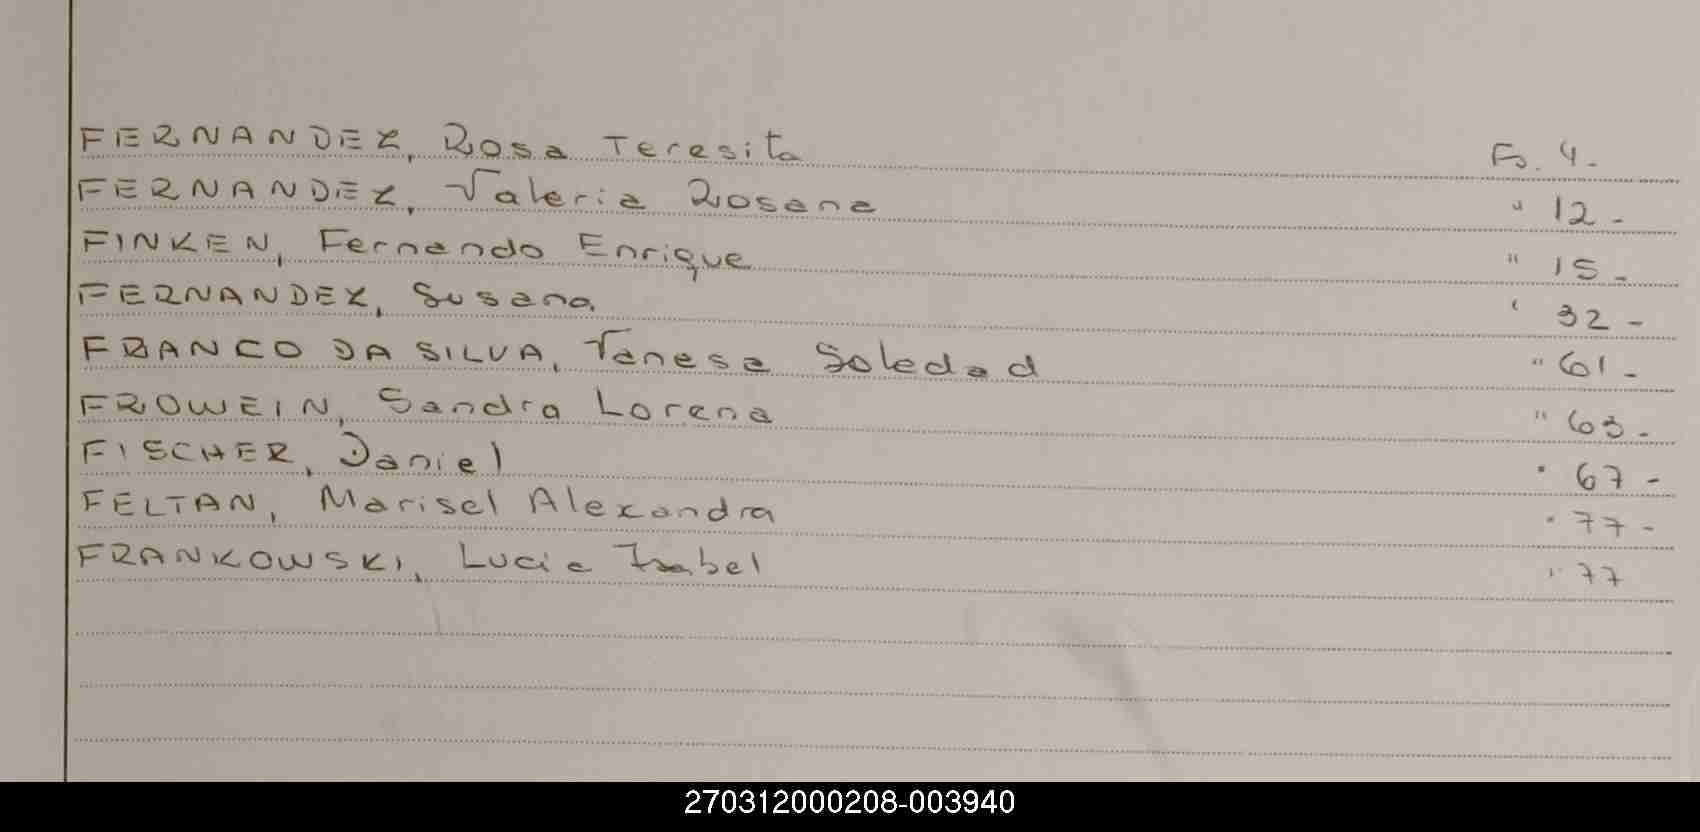 FERNANDEZ, Rosa Teresita Fs. 4.-
FERNANDEZ, Valeria Rosana " 12-
FINKEN, Fernando Enrique " 15-
FERNANDEZ, Susana. " 32-
FRANCO DA SILVA, Vanesa Soledad " 61-
FROWEIN, Sandra Lorena " 63-
FISCHER, Daniel " 67-
FELTAN, Marisel Alexandra " 77-
FRANKOWSKI, Lucia Isabel " 77
270312000208-003940